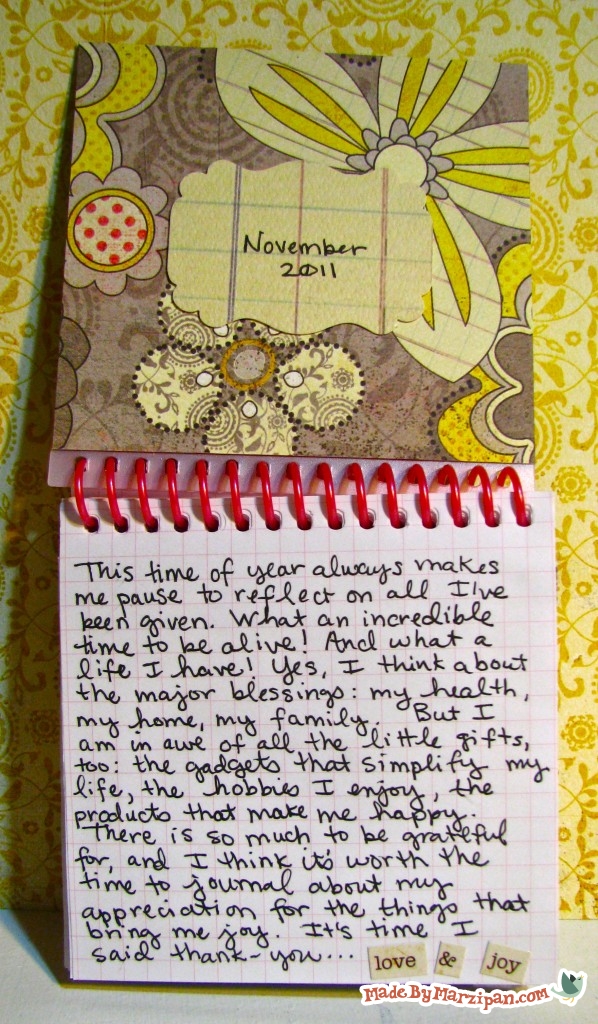 November
2011
This time of year always makes
me pause to reflect on all I've
been given. What an incredible
time to be alive! And what a
life I have! Yes, I think about
the major blessings: my health,
my home, my family. But I
am in awe of all the little gifts,
too: the gadgets that simplify my
life, the hobbies I enjoy, the
products that make me happy.
There is so much to be grateful
for, and I think it's worth the
time to journal about my
appreciation for the things that
bring me joy. It's time I
said thank-you...
love & joy
MadeByMarzipan.com